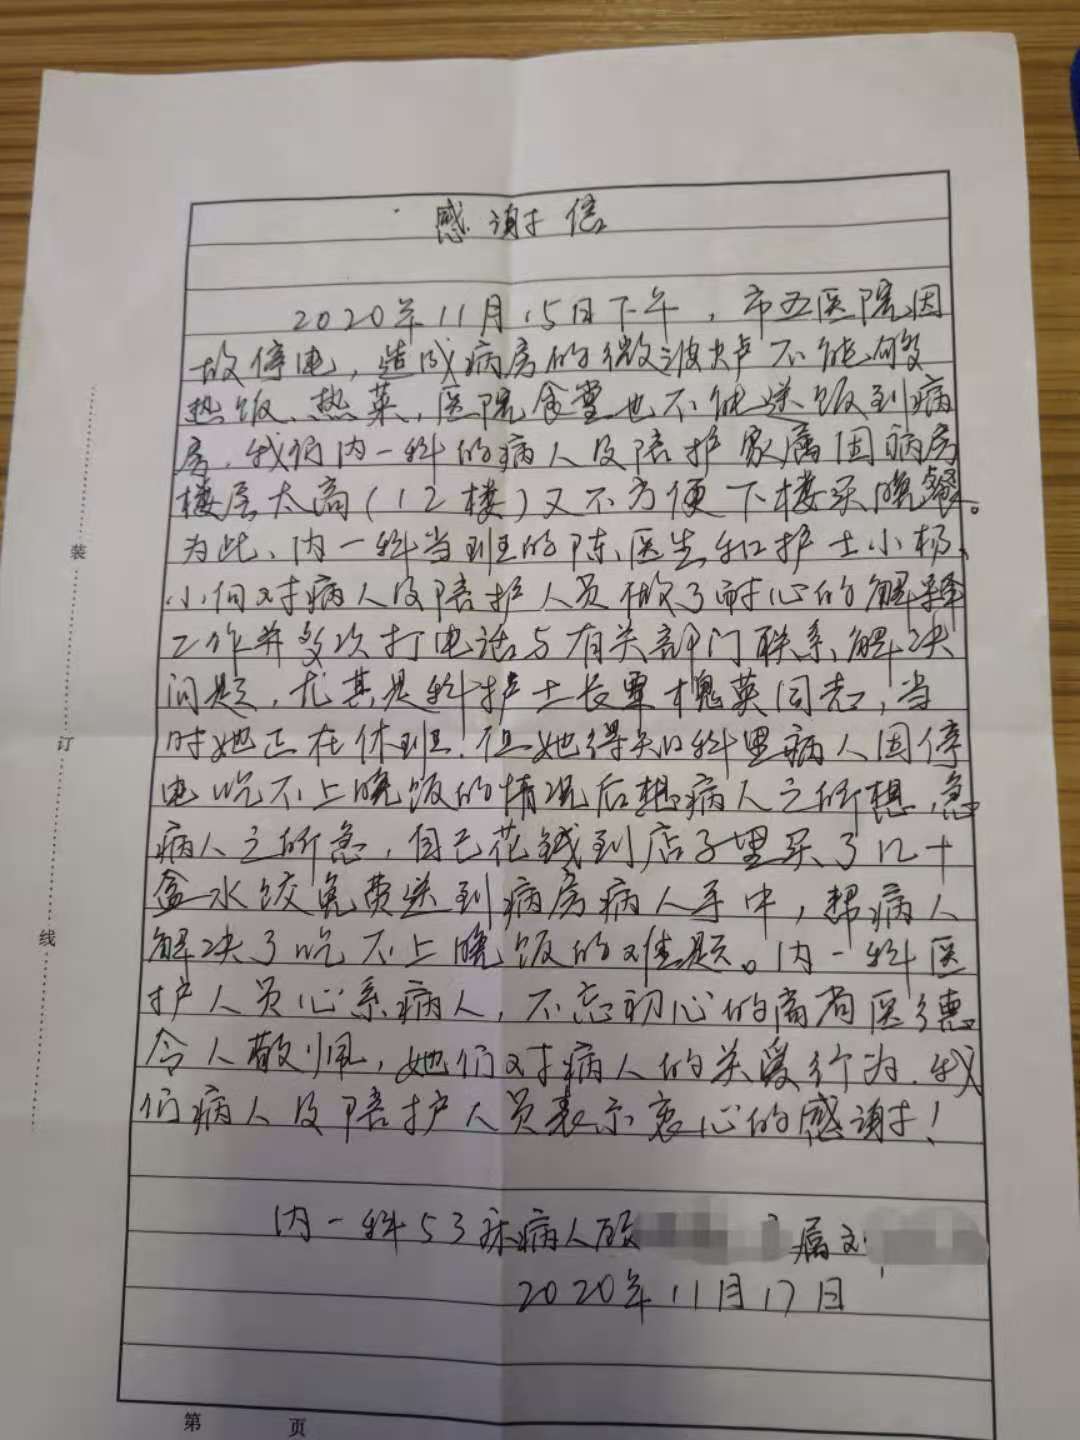 感谢信
2020年11月15日下午，市五医院因
故停电，造成病房的微波炉不能做
热饭、热菜，医院食堂也不能送饭到病
房，我们内一科的病人及陪护家属因病房
楼层太高（12楼）又不方便下楼买晚餐。
为此，内一科当班的陈医生和护士小杨、
小何对病人及陪护人员做了耐心的解释
工作并多次打电话与有关部门联系解决
问题，尤其是科护士长覃槐英同志，当
时她正在休班，但她得知科里病人因停
电吃不上晚饭的情况后想病人之所想，急
病人之所急，自己花钱到店子里买了几十
盒水饺免费送到病房病人手中，帮病人
解决了吃不上晚饭的难题。内一科医
护人员心系病人，不忘初心的高尚医德
令人敬佩，她们对病人的关爱行为，我
们病人及陪护人员表示衷心的感谢！
内一科53床病人 属
2020年11月17日
装
订
线
第 页